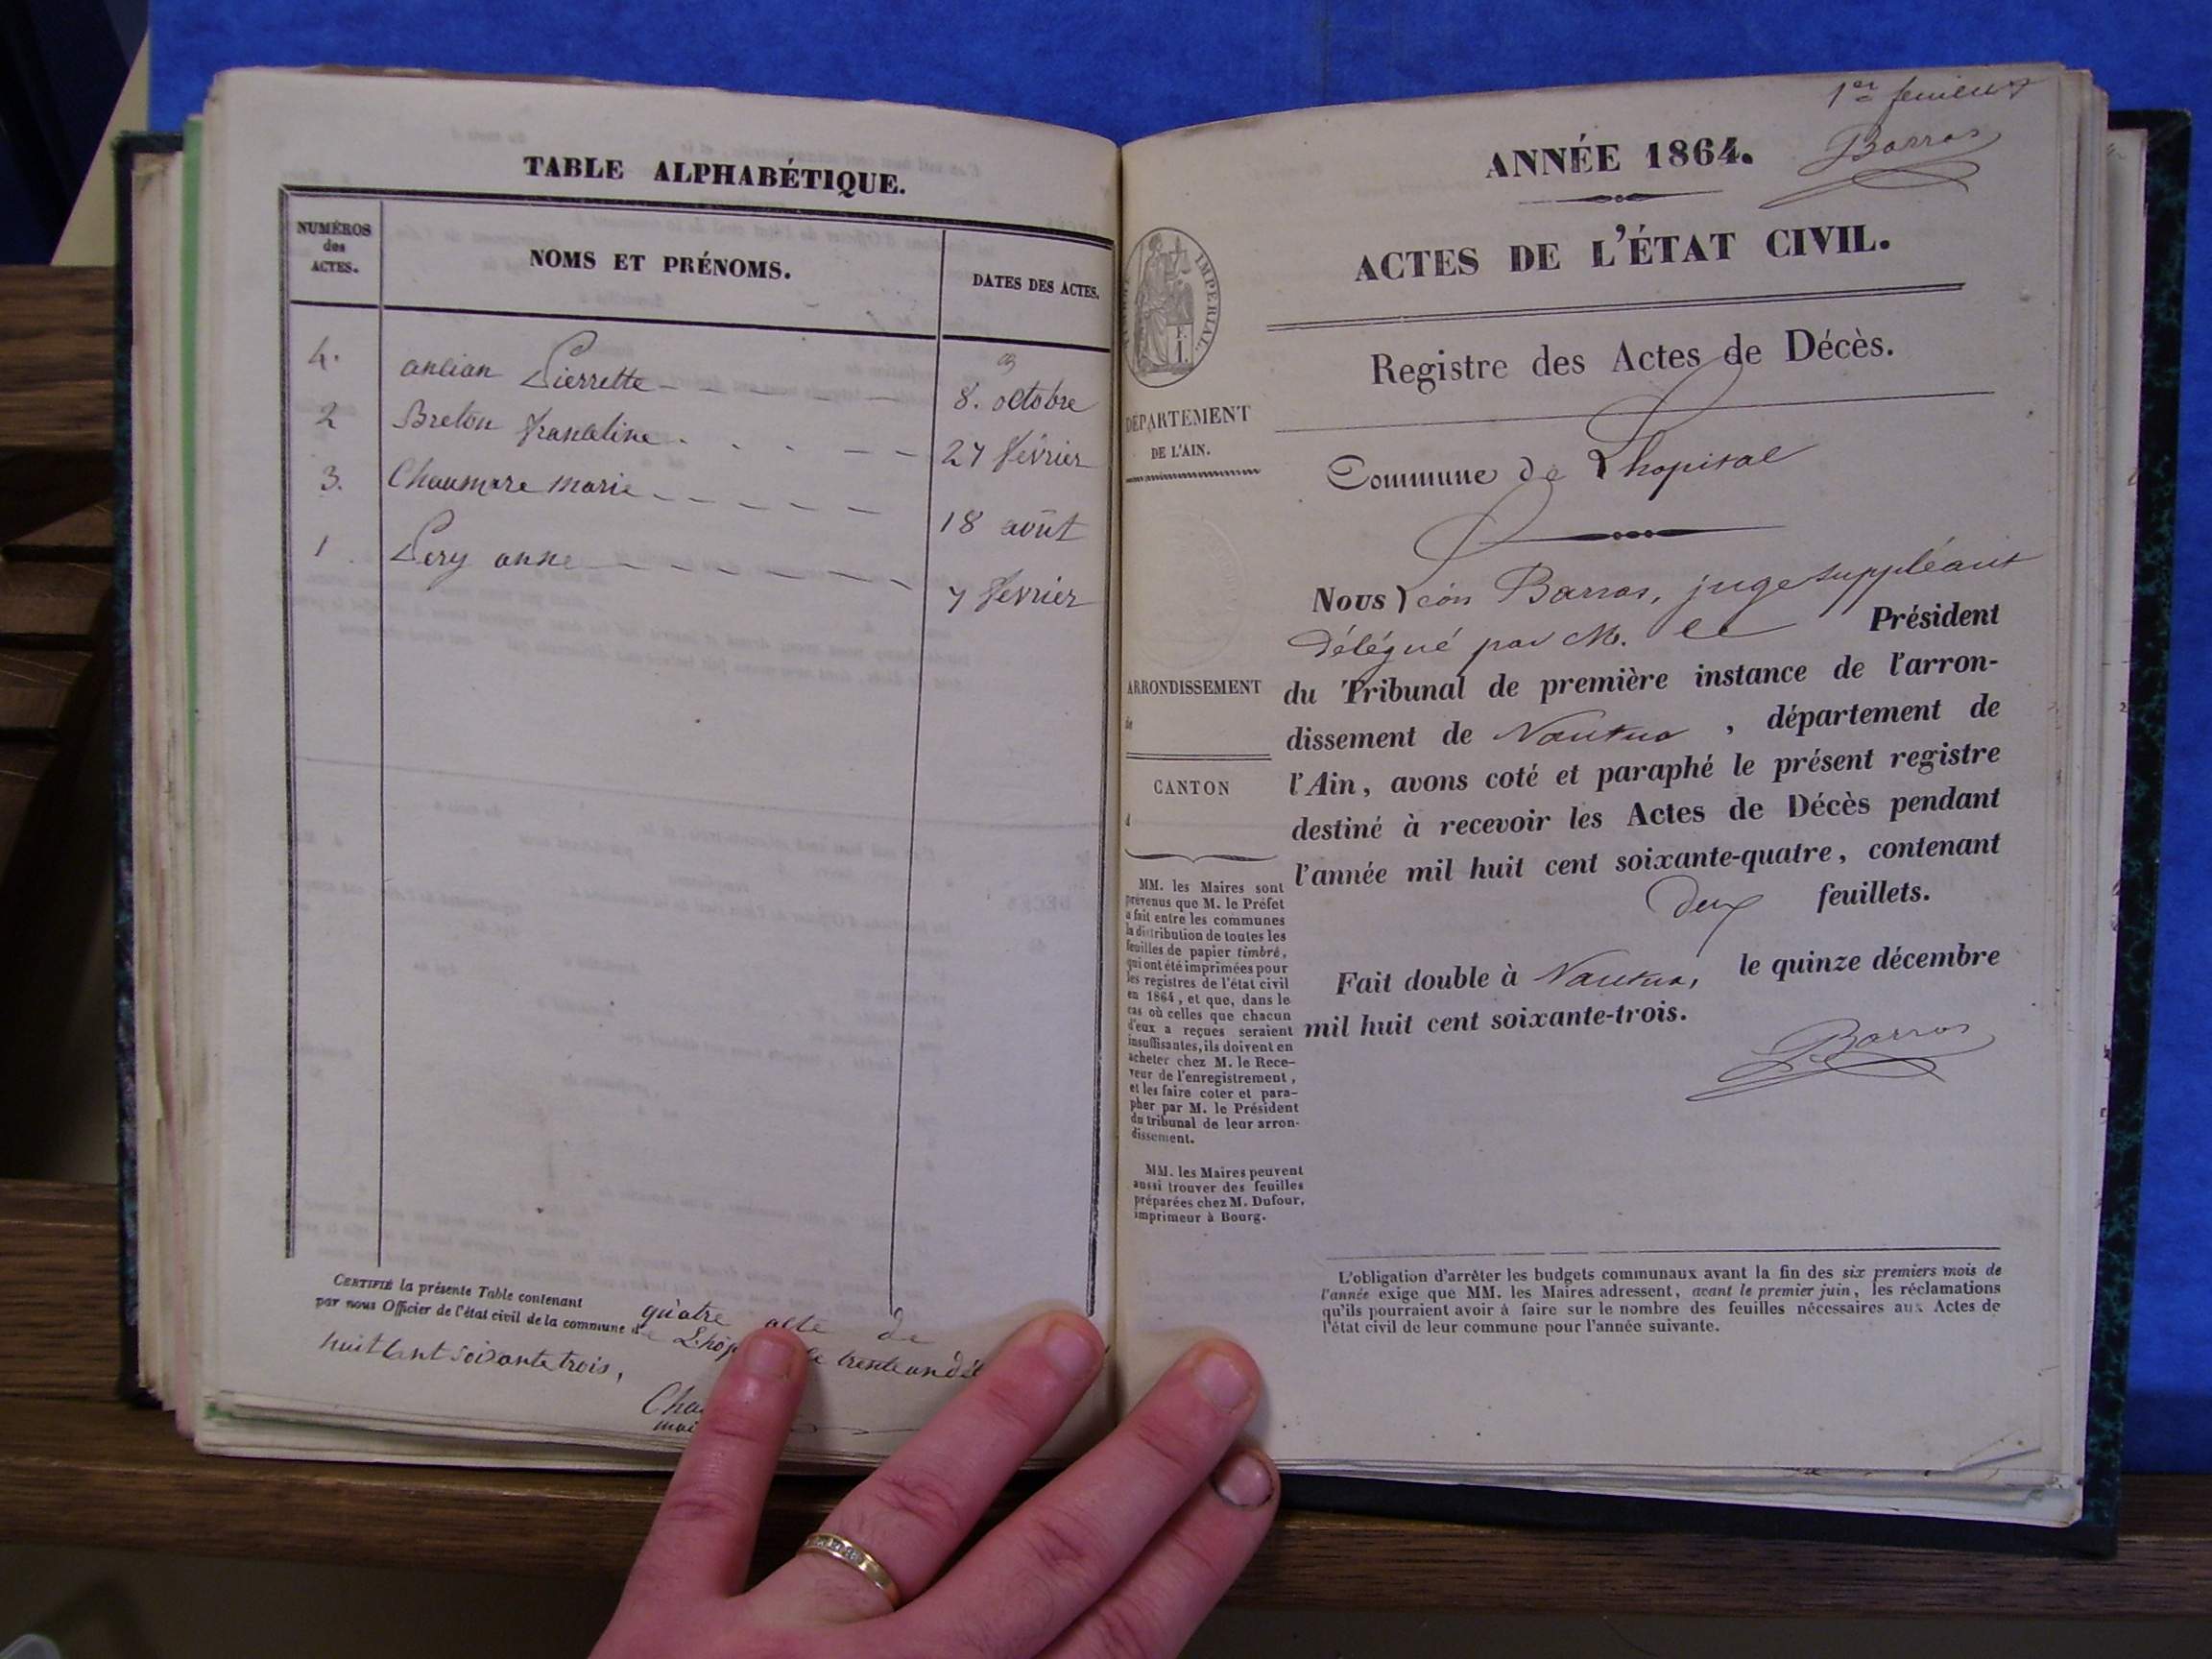 TABLE ALPHABÉTIQUE.
NUMÉROS
des
ACTES.
NOMS ET PRÉNOMS.
DATES DES ACTES.
4. ancian Pierrette 8. octobre
2 Breton franceline 27 février
3. Chaumare marie 18 août
1. Pery anne 7 février
CERTIFIÉ la présente Table contenant quatre acte de
par nous Officier de l'état civil de la commune de le trente un
huit cent soixante trois,
1er feuillet
Barras
ANNÉE 1864.
ACTES DE L'ÉTAT CIVIL.
IMPERIAL.
Registre des Actes de Décès.
DÉPARTEMENT
DE L'AIN.
Commune de Lhopital
Nous Léon Barras, juge suppléant
délégué par M. le Président
ARRONDISSEMENT
de
du Tribunal de première instance de l'arron-
dissement de Nantua, département de
l'Ain, avons coté et paraphé le présent registre
destiné à recevoir les Actes de Décès pendant
l'année mil huit cent soixante-quatre, contenant
deux feuillets.
Fait double à Nantua, le quinze décembre
mil huit cent soixante-trois.
Barras
CANTON
d
MM. les Maires sont
prévenus que M. le Préfet
a fait entre les communes
la distribution de toutes les
feuilles de papier timbré,
qui ont été imprimées pour
les registres de l'état civil
en 1864, et que, dans le
cas où celles que chacun
d'eux a reçues seraient
insuffisantes, ils doivent en
acheter chez M. le Rece-
veur de l'enregistrement,
et les faire coter et para-
pher par M. le Président
du tribunal de leur arron-
dissement.
MM. les Maires peuvent
aussi trouver des feuilles
préparées chez M. Dufour,
imprimeur à Bourg.
L'obligation d'arrêter les budgets communaux avant la fin des six premiers mois de
l'année exige que MM. les Maires adressent, avant le premier juin, les réclamations
qu'ils pourraient avoir à faire sur le nombre des feuilles nécessaires aux Actes de
l'état civil de leur commune pour l'année suivante.